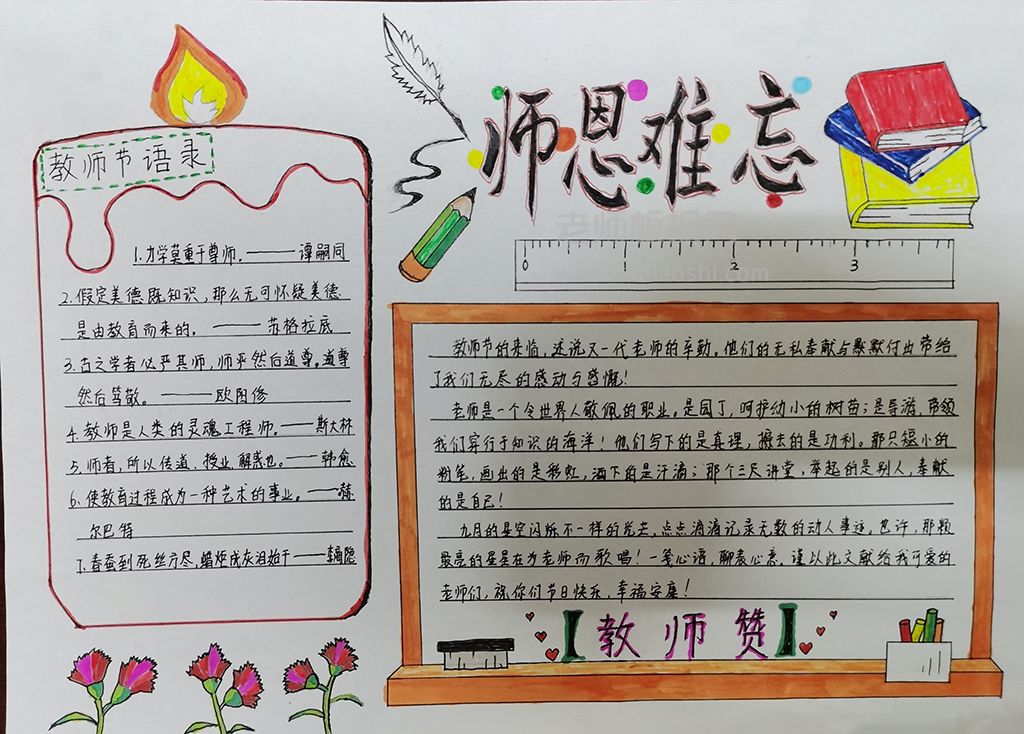 师恩难忘
教师节语录
1.为学莫重于尊师。——谭嗣同
2.假定美德既知识,那么无可怀疑美德
是由教育而来的。——苏格拉底
3.古之学者必严其师,师严然后道尊。道尊
然后笃敬。——欧阳修
4.教师是人类的灵魂工程师。——斯大林
5.师者,所以传道、授业、解惑也。——韩愈
6.使教育过程成为一种艺术的事业。——赫
尔巴特
7.春蚕到死丝方尽,蜡炬成灰泪始干——李商隐
0 1 2 3
教师节的来临,述说又一代老师的辛勤。他们的无私奉献与默默付出带给
了我们无尽的感动与感慨!
老师是一个令世界人敬佩的职业。是园丁,呵护幼小的树苗;是导游,带领
我们穿行于知识的海洋!他们写下的是真理,擦去的是功利。那只短小的
粉笔,画出的是彩虹,洒下的是汗滴;那个三尺讲堂,举起的是别人,奉献
的是自己!
九月的星空闪烁不一样的光芒,点点滴滴记录无数的动人事迹。也许,那颗
最亮的星星在为老师而歌唱!一笺心语,聊表心意,谨以此文献给我可爱的
老师们,祝你们节日快乐,幸福安康!
【教师赞】